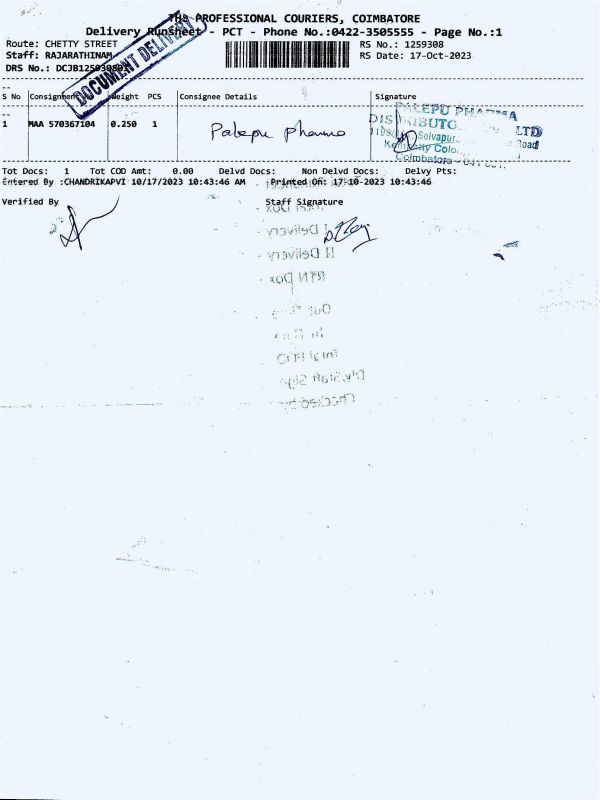 THE PROFESSIONAL COURIERS, COIMBATORE
Delivery Runsheet - PCT - Phone No.:0422-3505555 - Page No.:1
Route: CHETTY STREET RS No.: 1259308
Staff: RAJARATHINAM RS Date: 17-Oct-2023
DRS No.:
DOCUMENT DELIVERY
S No Consignment No Weight PCS Consignee Details Signature
1 MAA 570367104 0.250 1 Palepu pharma
PALEPU PHARMA
LTD
Selvapur Road
Coimbatore
Tot Docs: 1 Tot COD Amt: 0.00 Delvd Docs: Non Delvd Docs: Delvy Pts:
Entered By :CHANDRIKAPVI 10/17/2023 10:43:46 AM Printed On: 17-10-2023 10:43:46
Verified By Staff Signature
I Delivery
II Delivery
RTN Dox